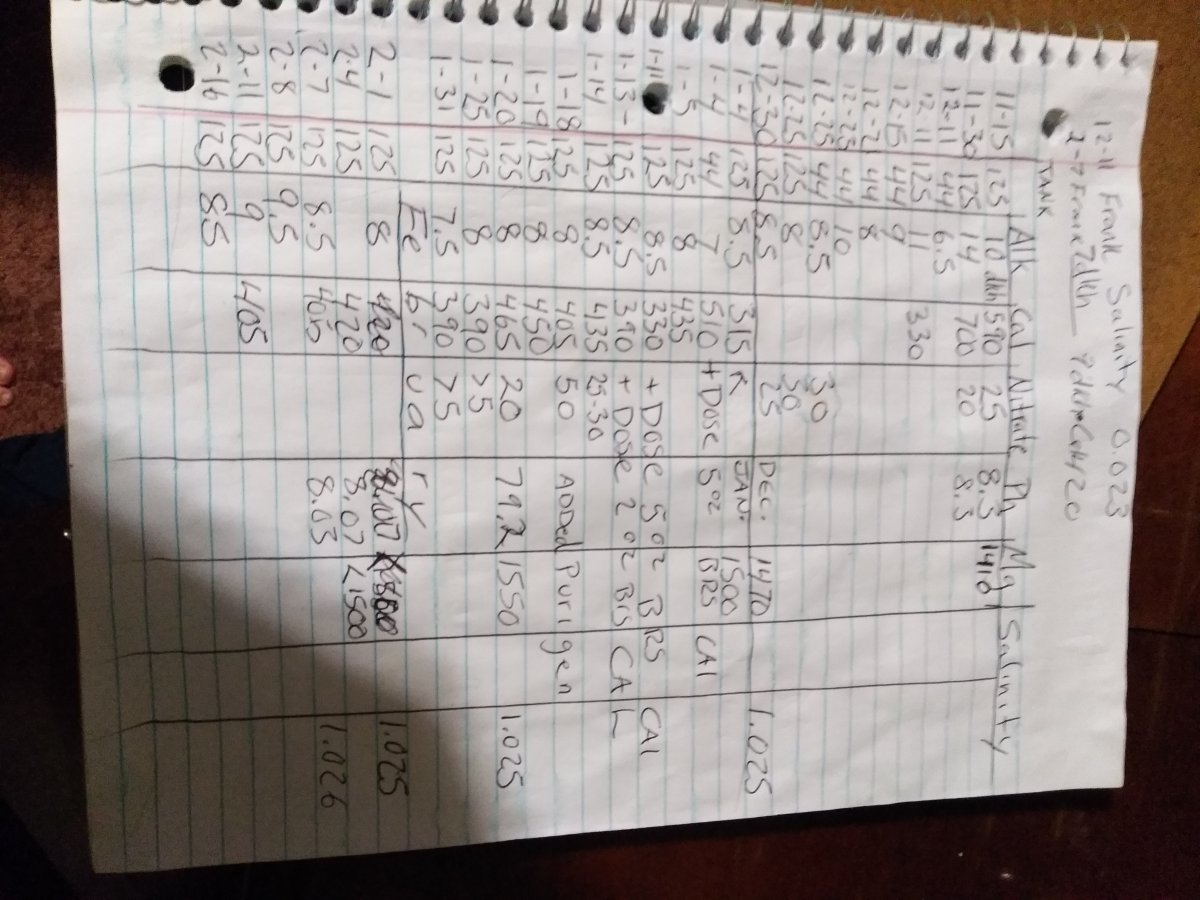 12-11 Frank Salinity 0.023
2-7 Frank 7dkh
TANK Alk Cal Nitrate Ph Mg Salinity
11-15 125 10 dkh 590 25 8.3 1410
11-30 125 14 700 20 8.3
12-11 44 6.5
12-11 125 11 330
12-15 44 9
12-21 44 8
12-25 44 10
12-25 44 8.5 30
12-25 125 8 30
12-30 125 8.5 25 DEC. 1470 1.025
1-4 125 8.5 315 JAN. 1500
1-4 44 7 510 + Dose 5oz BRS CAl
1-5 125 8 435
1-11 125 8.5 330 + DOSE 5oz BRS CAl
1-13- 125 8.5 390 + DOSE 2oz BRS CAL
1-14 125 8.5 435 25-30
1-18 125 8 405 50 ADDed Purigen
1-19 125 8 450
1-20 125 8 465 20 79.2 1550 1.025
1-25 125 8 390 >5
1-31 125 7.5 390 >5
February
2-1 125 8 420 1.025
2-4 125 420 8.07 <1500
2-7 125 8.5 405 8.03 1.026
2-8 125 9.5
2-11 125 9 405
2-16 125 8.5